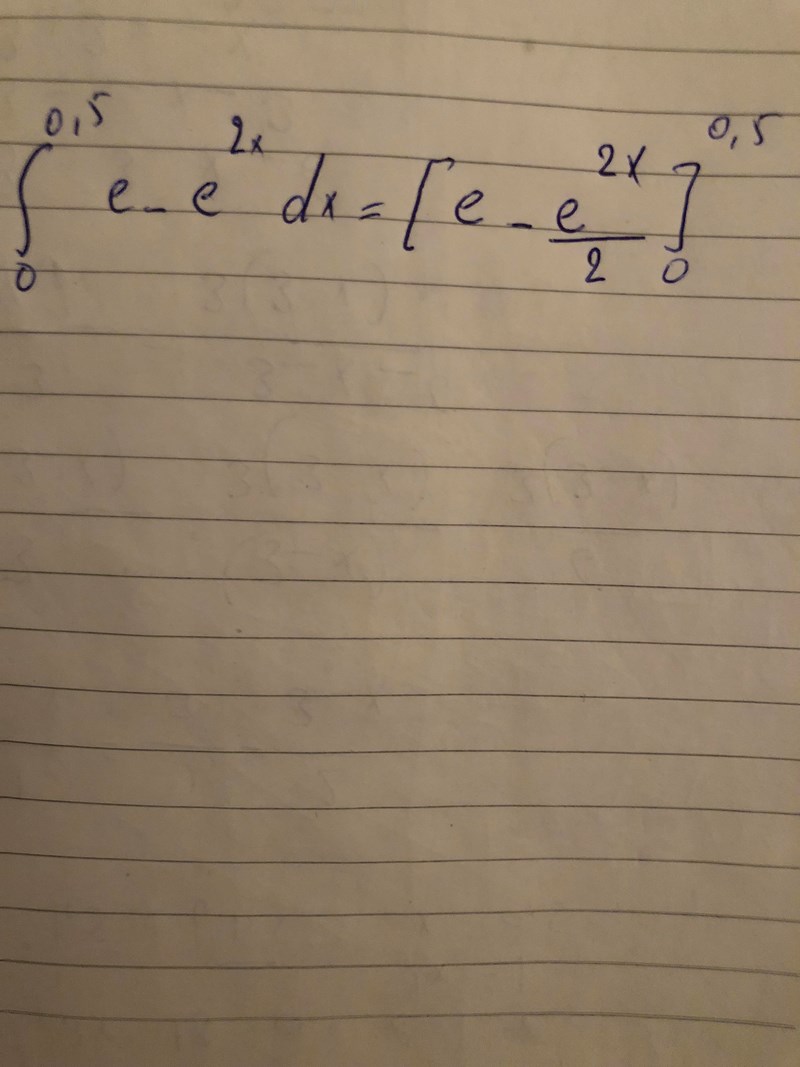 ∫₀^{0,5} e - e^{2x} dx = [e - e^{2x}/2]₀^{0,5}